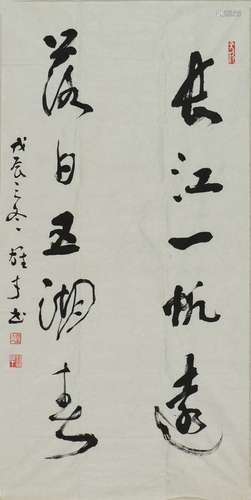 長江一帆遠
落日五湖春
戊辰之冬